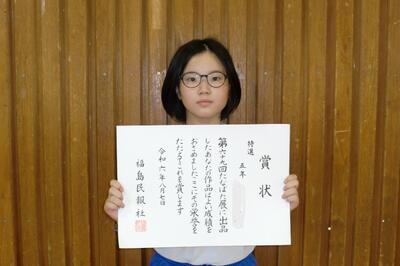 賞状
特選
五年
第六十九回たなばた展に出品
したあなたの作品はよい成績を
おさめました ここにその栄誉を
たたえてこれを賞します
令和六年八月七日
福島民報社